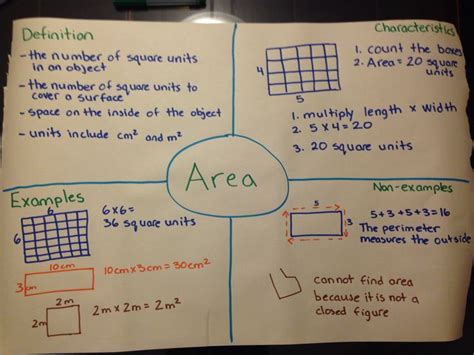 Definition
-the number of square units
in an object
-the number of square units to
cover a surface
-space on the inside of the object
-units include cm² and m²
Characteristics
4
5
1. count the boxes
2. Area = 20 square
units
1. multiply length x width
2. 5x4=20
3. 20 square units
Area
Examples
6
6
6x6=
36 square units
10cm
3cm
10cm x 3cm = 30cm²
2m
2m
2m x 2m = 2m²
Non-examples
5
3
5+3+5+3=16
The perimeter
measures the outside
cannot find area
because it is not a
closed figure